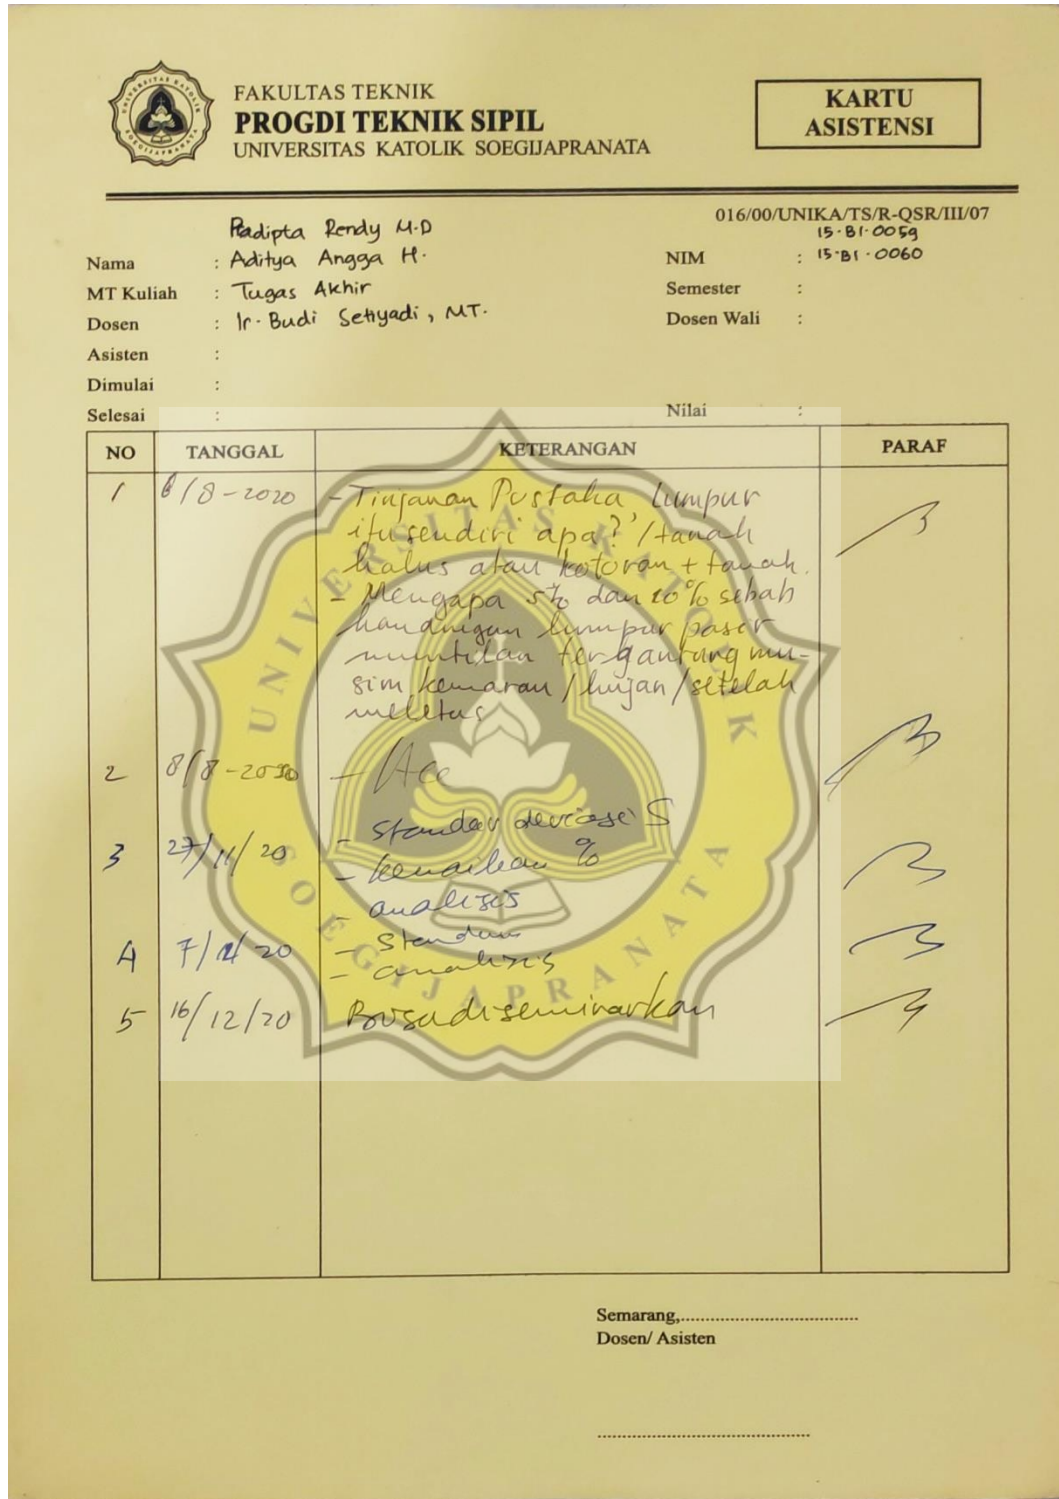 FAKULTAS TEKNIK
PROGDI TEKNIK SIPIL
UNIVERSITAS KATOLIK SOEGIJAPRANATA
KARTU
ASISTENSI
016/00/UNIKA/TS/R-QSR/III/07
Pradipta Rendy M.D
15.B1.0059
Nama : Aditya Angga H.
NIM : 15.B1.0060
MT Kuliah : Tugas Akhir
Semester :
Dosen : Ir. Budi Setiyadi, MT.
Dosen Wali :
Asisten :
Dimulai :
Selesai :
Nilai :
NO TANGGAL KETERANGAN PARAF
1 6/8-2020 - Tinjauan Pustaka, lumpur
itu sendiri apa? /tanah
halus atau kotoran + tanah.
- Mengapa 5% dan 10% sebab
kandungan lumpur pasir
muntilan tergantung mu-
sim kemarau/hujan/setelah
meletus
2 8/8-2020 - Acc
3 27/11/20 - Standar deviasi S
- kenaikan %
- analisis
4 7/12/20 - Standar
- analisis
5 16/12/20 Bisa diseminarkan
UNIVERSITAS KATOLIK
SOEGIJAPRANATA
Semarang,.....................................
Dosen/ Asisten